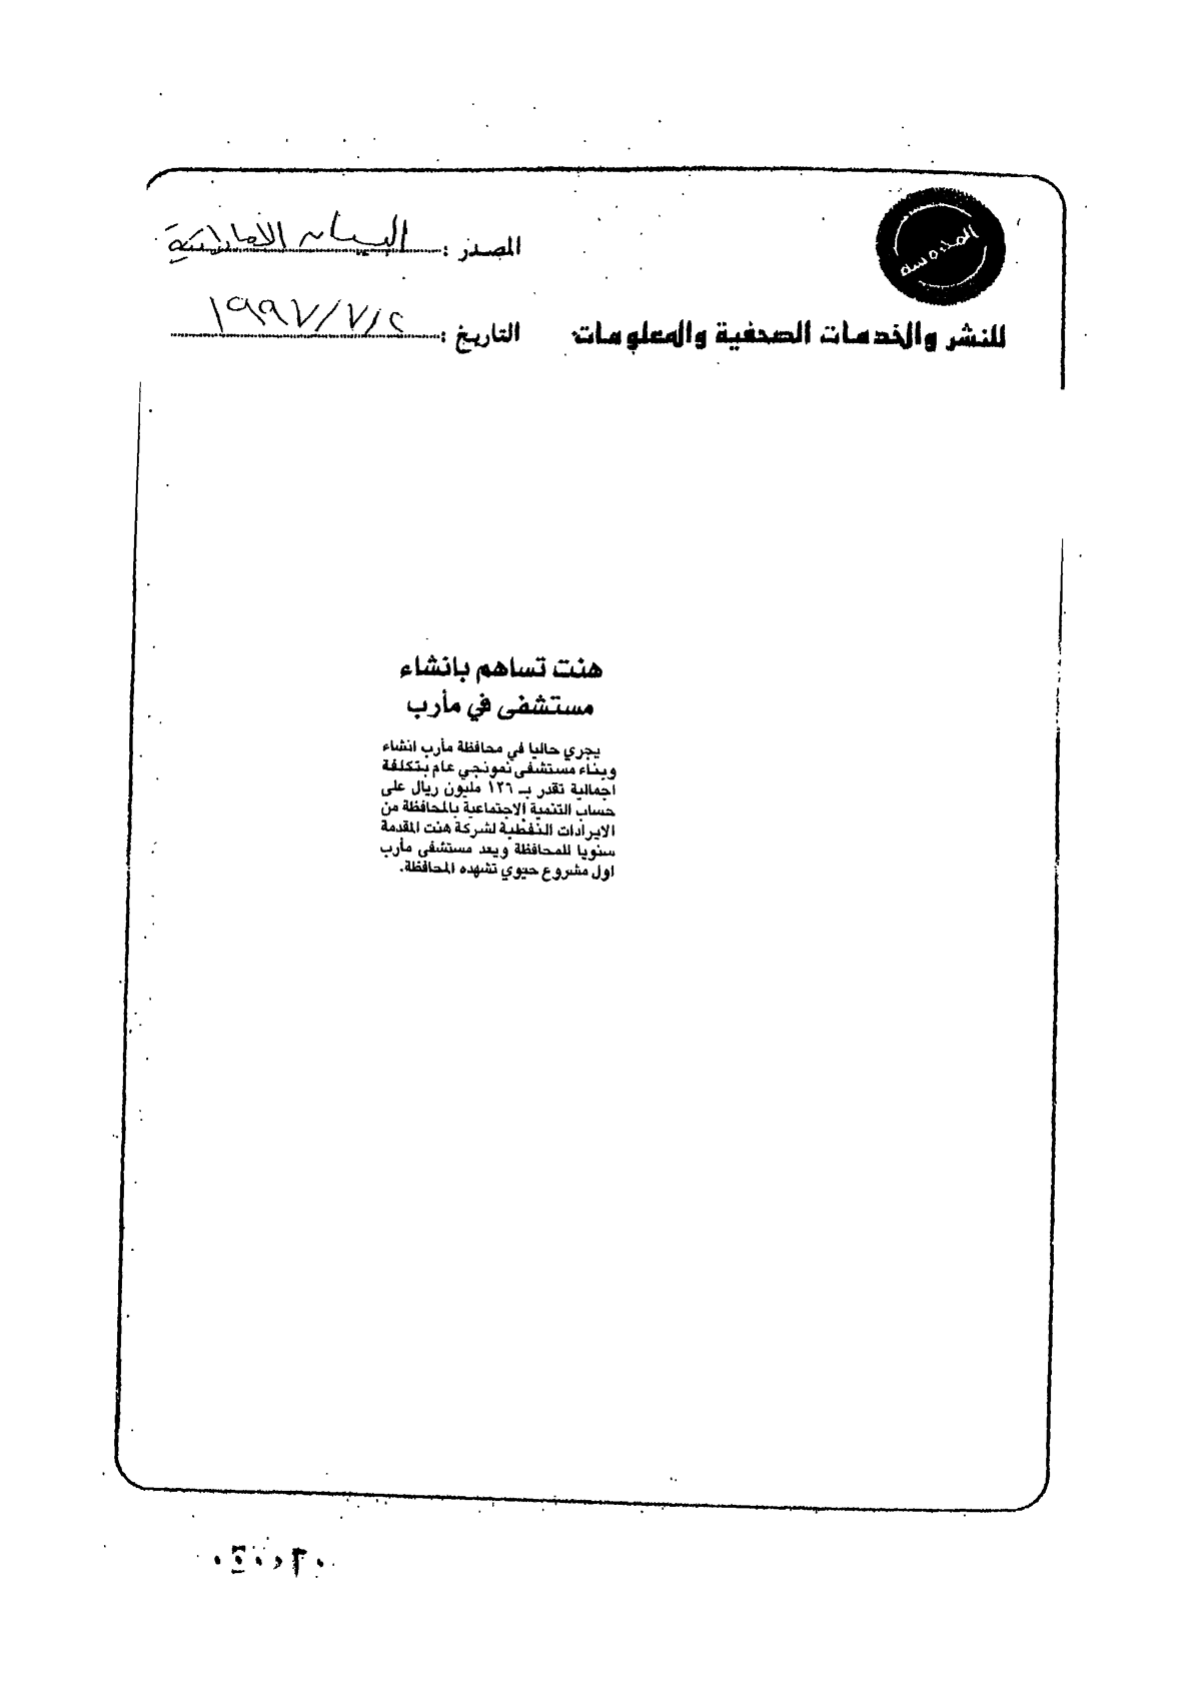 المحروسة
المصدر : البيان الاماراتية
للنشر والخدمات الصحفية والمعلومات
التاريخ : ١٩٩٧/٧/٢
هنت تساهم بانشاء
مستشفى في مأرب
يجري حاليا في محافظة مأرب انشاء
وبناء مستشفى نموذجي عام بتكلفة
اجمالية تقدر بـ ١٢٦ مليون ريال على
حساب التنمية الاجتماعية بالمحافظة من
الايرادات النفطية لشركة هنت المقدمة
سنويا للمحافظة ويعد مستشفى مأرب
اول مشروع حيوي تشهده المحافظة.